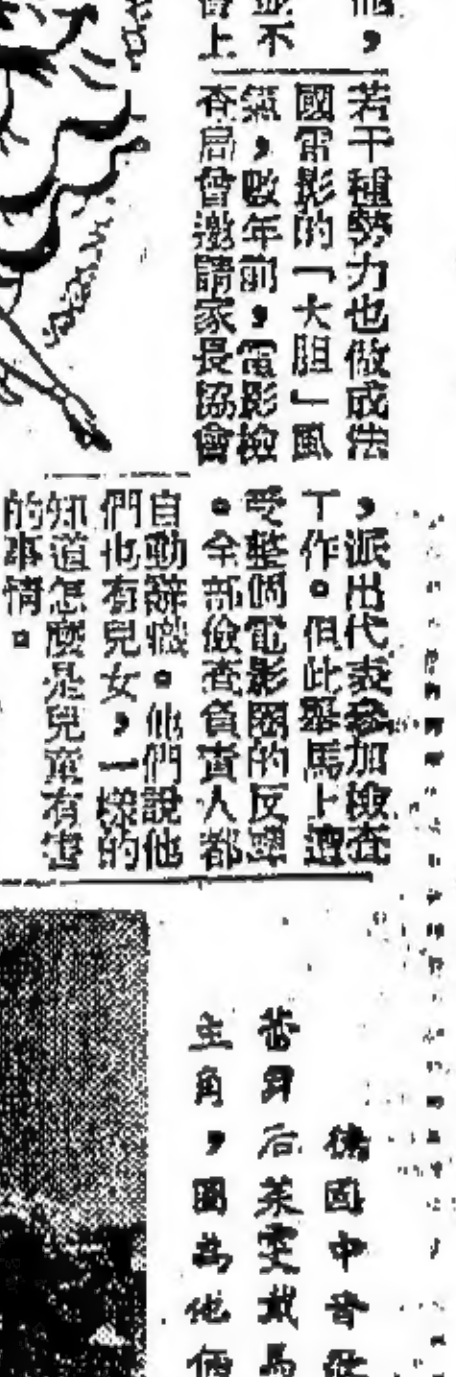 他，
並不
會上
若干種勢力也做成法
國電影的「大胆」風
氣，數年前，電影檢
查局曾邀請家長協會
，派出代表參加檢查
工作。但此舉馬上遭
受整個電影圈的反對
。全部檢查負責人都
自動辭職。他們說他
們也有兒女，一樣的
知道怎麼是兒童有害
的事情。
德國中音
主角，圖為他倆